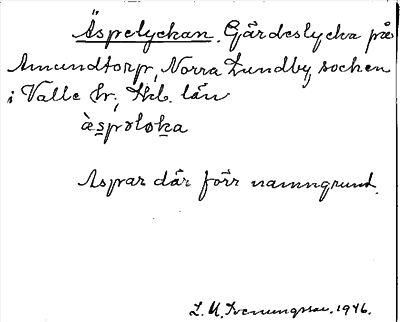 Äspelyckan. Gärdeslycka på
Amundtorp, Norra Lundby socken
i Valle hr, Skb. län
äspəlo̱ka
Aspar där förr namngrund.
L. M. Svenungsson. 1946.